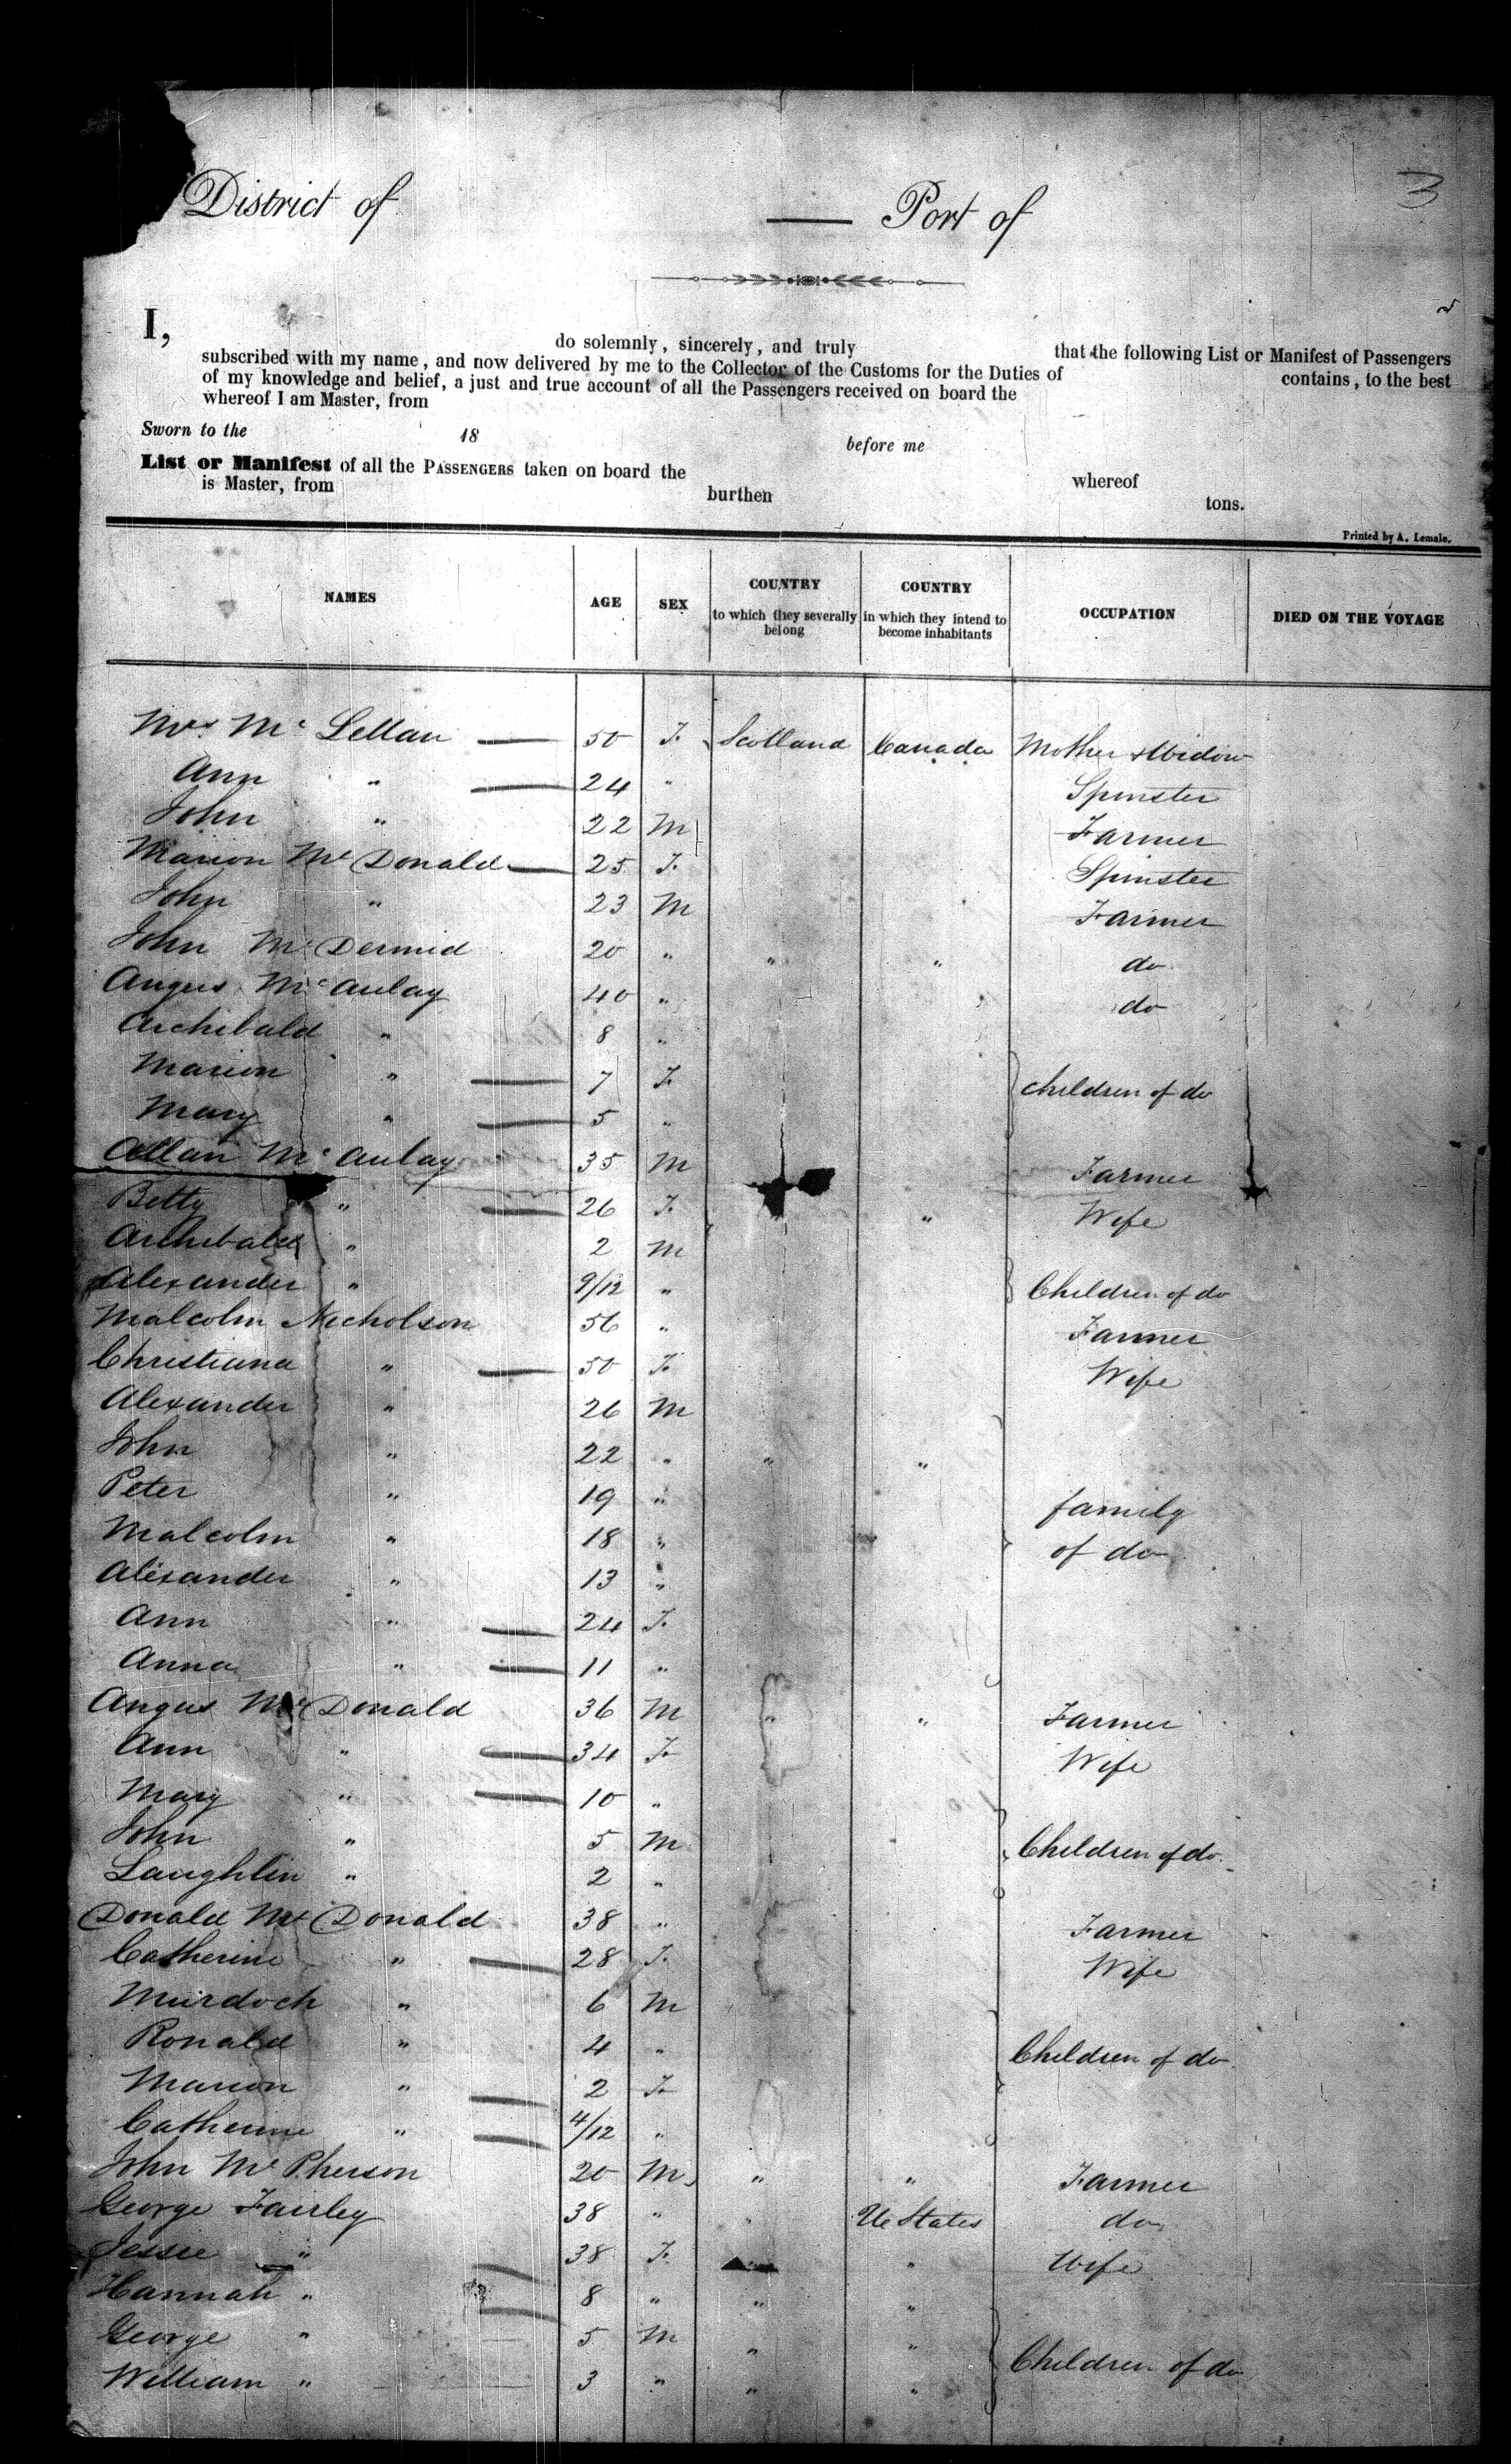 3
District of — Port of
I, do solemnly, sincerely, and truly that the following List or Manifest of Passengers
subscribed with my name, and now delivered by me to the Collector of the Customs for the Duties of contains, to the best
of my knowledge and belief, a just and true account of all the Passengers received on board the
whereof I am Master, from
Sworn to the 18 before me
List or Manifest of all the PASSENGERS taken on board the whereof
is Master, from burthen tons.
Printed by A. Lemale.
NAMES AGE SEX COUNTRY to which they severally belong COUNTRY in which they intend to become inhabitants OCCUPATION DIED ON THE VOYAGE
Mrs. Mc Lellan — 50 F. Scotland Canada Mother & Widow
Ann " — 24 " Spinster
John " 22 M Farmer
Marion Mc Donald — 25 F. Spinster
John " 23 M Farmer
John Mc Dermid 20 " " " do
Angus Mc Aulay 40 " do
Archibald " 8 "
Marion " — 7 F. children of do
Mary " — 5 "
Allan Mc Aulay 35 M Farmer
Betty " — 26 F. " Wife
Archibald " 2 M
Alexander " 9/12 " Children of do
Malcolm Nicholson 56 " Farmer
Christiana " — 50 F. Wife
Alexander " 26 M
John " 22 " " "
Peter " 19 " family
Malcolm " 18 " of do
Alexander " 13 "
Ann " — 24 F.
Anna " — 11 "
Angus Mc Donald 36 M " " Farmer
Ann " — 34 F. Wife
Mary " — 10 "
John " 5 M Children of do.
Laughlin " 2 "
Donald Mc Donald 38 " Farmer
Catherine " — 28 F. Wife
Murdoch " 6 M
Ronald " 4 " Children of do
Marion " — 2 F.
Catherine " — 4/12 "
John Mc Pherson 20 M " " Farmer
George Fairley 38 " Ue States do
Jessie " — 38 F. " Wife
Hannah " — 8 " " "
George " 5 M " " Children of do
William " 3 " " "